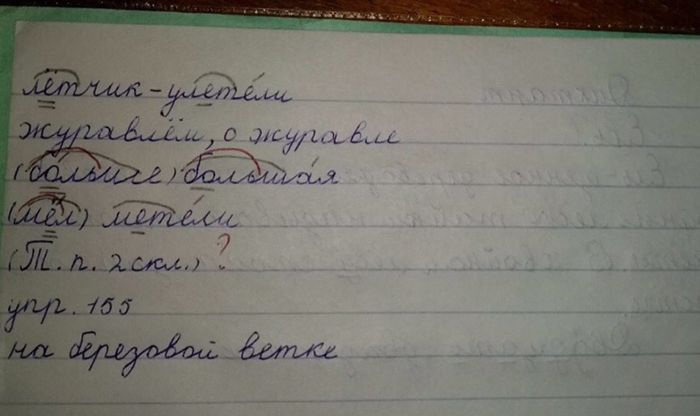 лётчик - улете́ли
журавлём, о журавле
(бо́льше) больша́я
(мёл) мете́ли
(Т. п. 2 скл.) ?
упр. 155
на березовой ветке